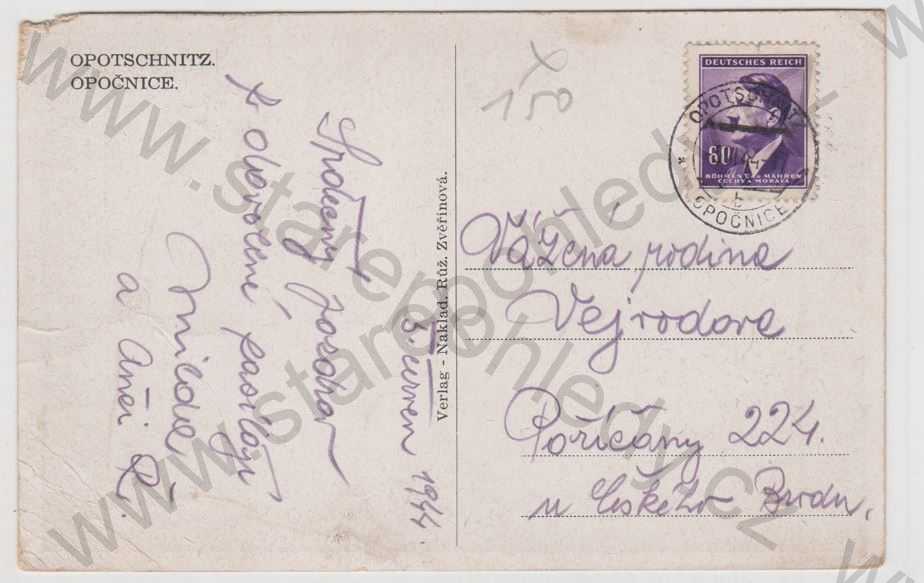 OPOTSCHNITZ.
OPOČNICE.
Srdečný pozdrav
z dovolené, zasílají
a Anči R.
5. červen 1944
Verlag - Naklad. Růž. Zvěřinová.
x
150
DEUTSCHES REICH
60
BÖHMEN u. MÄHREN
ČECHY a MORAVA
OPOČNICE
b
Vážená rodina
Vejrodova
Poříčany 224.
u Českého Brodu.
www.starepohledy.cz
www.starepohledy.cz